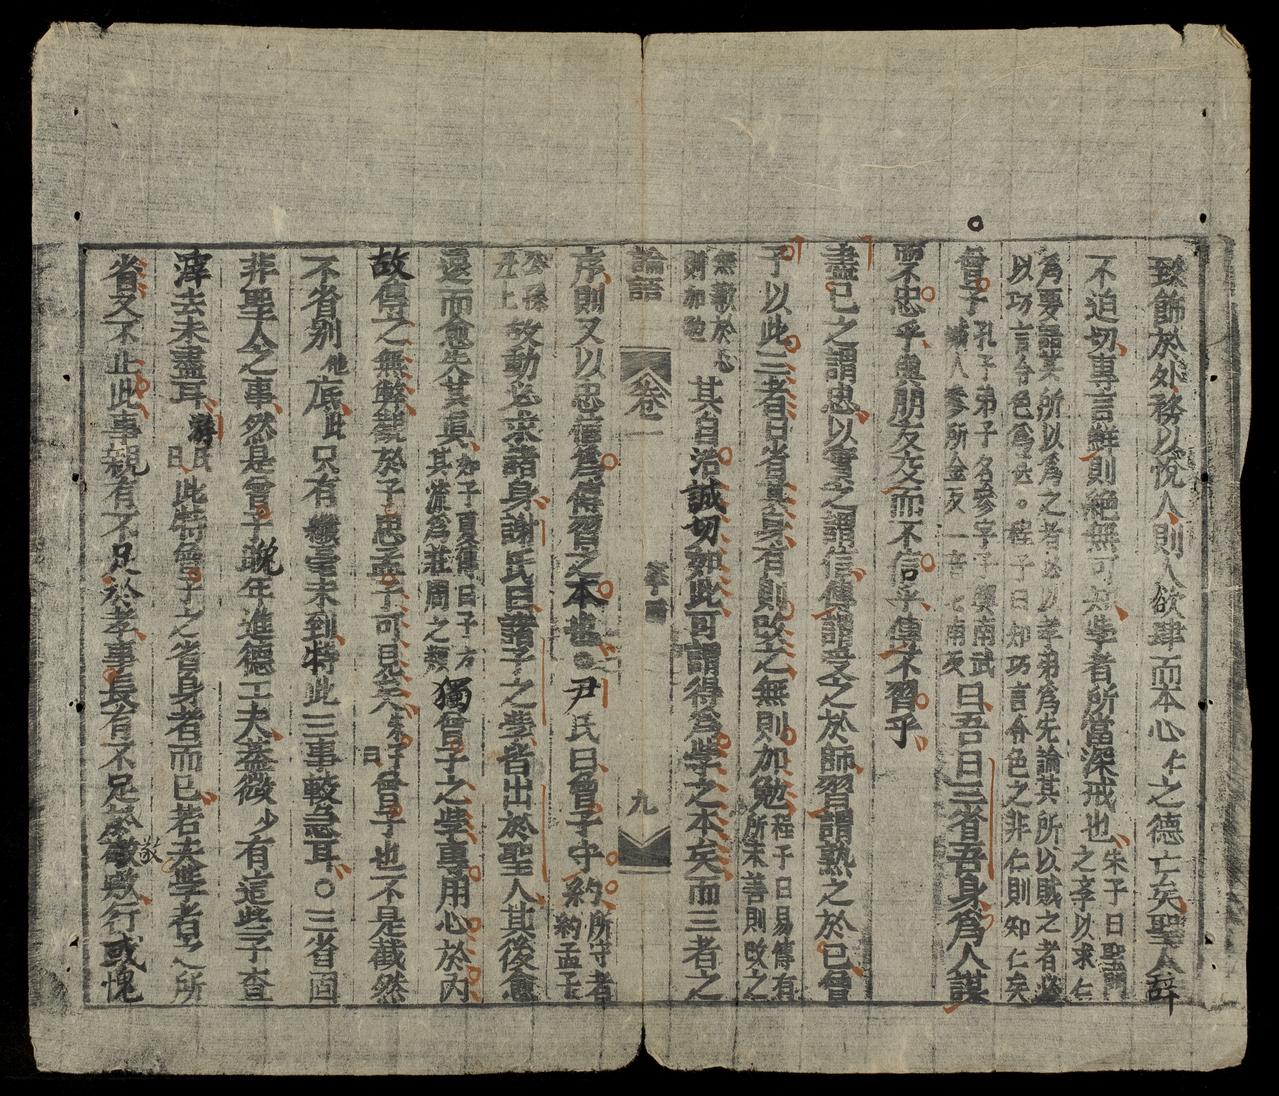 致飾於外務以悅人則人欲肆而本心仁之德亡矣聖人辭
不迫切專言鮮則絕無可知學者所當深戒也朱子曰聖門之學以求仁
為要語其所以為之者必以孝弟為先論其所以賊之者必
以巧言令色為甚。程子曰知巧言令色之非仁則知仁矣
曾子孔子弟子名參字子輿南武城人曰吾日三省吾身為人謀
而不忠乎與朋友交而不信乎傳不習乎
盡已之謂忠以實之謂信傳謂受之於師習謂熟之於已曾
子以此三者日省其身有則改之無則加勉程子曰易傳有所未善則改之
無歉於心則加勉其自治誠切如此可謂得為學之本矣而三者之
論語 卷一 九
序則又以忠信為傳習之本也○尹氏曰曾子守約所守者約孟子
公孫丑上故動必求諸身謝氏曰諸子之學皆出於聖人其後愈
遠而愈失其真如子夏傳田子方其流為莊周之類獨曾子之學專用心於內
故傳之無弊觀於子思孟子可見矣朱子曰曾子也不是截然
不省別他底此只有纖毫未到特此三事較急耳○三省固
非聖人之事然是曾子晚年進德工夫蓋微少有這些子查
滓去未盡耳游氏曰此特曾子之省身者而已若夫學者之所
省又不止此事親有不足於孝事長有不足於敬歟行或愧
敬